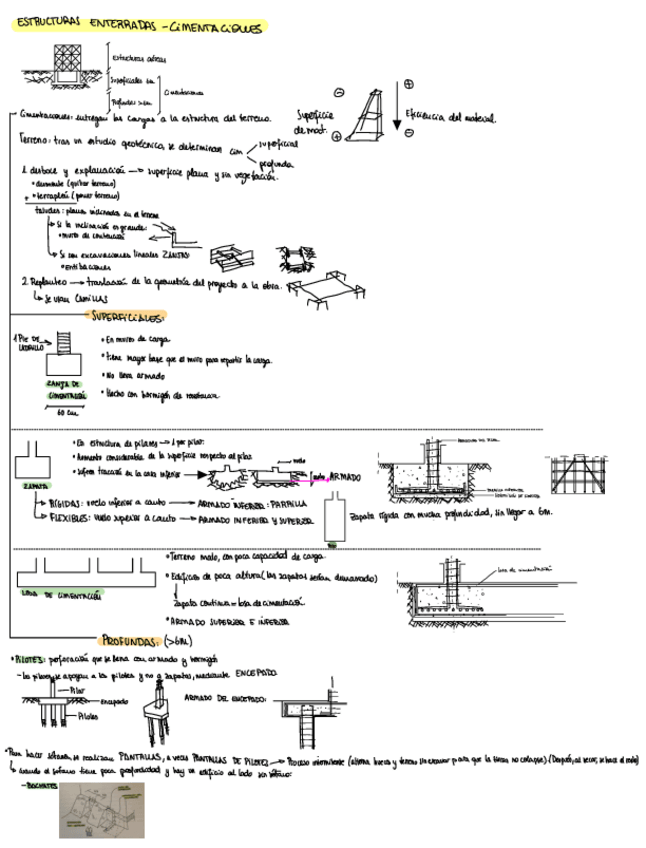 ESTRUCTURAS ENTERRADAS - CIMENTACIONES
Estructuras aéreas
Superficiales 6m
Profundas >6m
Cimentaciones
Cimentaciones: entregan las cargas a la estructura del terreno.
Superficie de mat.
Eficiencia del material.
Terreno: tras un estudio geotécnico, se determinan cim
superficial
profunda.
1. desbroce y explanación → superficie plana y sin vegetación.
• desmonte (quitar terreno)
• terraplén (poner terreno)
taludes: planos inclinados en el terreno
Si la inclinación es grande:
• muros de contención
Si son excavaciones lineales ZANJAS:
• entibaciones
2. Replanteo → traslación de la geometría del proyecto a la obra.
Se usan CAMILLAS
SUPERFICIALES:
1 PIE DE LADRILLO
ZANJA DE CIMENTACIÓN
60 cm
• En muros de carga
• tiene mayor base que el muro para repartir la carga.
• No lleva armado
• Hecho con hormigón de
ZAPATA
• En estructura de pilares → 1 por pilar.
• Aumento considerable de la superficie respecto al pilar.
• Sufren tracción en la cara inferior →
vuelo
canto
ARMADO
RÍGIDAS: vuelo inferior a canto → ARMADO INFERIOR: PARRILLA
FLEXIBLES: vuelo superior a canto → ARMADO INFERIOR Y SUPERIOR
Zapata rígida con mucha profundidad, sin llegar a 6m.
LOSA DE CIMENTACIÓN
• Terreno malo, con poca capacidad de carga.
• Edificios de poca altura (las zapatas serían demasiado)
Zapata continua = losa de cimentación.
• ARMADO SUPERIOR E INFERIOR
losa de cimentación
PROFUNDAS: (>6m)
• PILOTES: perforación que se llena con armado y hormigón
- Los pilares se apoyan a los pilotes y no a zapatas, mediante ENCEPADO
Pilar
encepado
Pilotes
ARMADO DEL ENCEPADO:
• Para hacer sótanos, se realizan PANTALLAS, a veces PANTALLAS DE PILOTES → Proceso intermitente (alterna hueco y terreno sin excavar para que la tierra no colapse). (Después, al secar, se hace el resto)
cuando el sótano tiene poca profundidad y hay un edificio al lado sin sótano:
- BATACHES